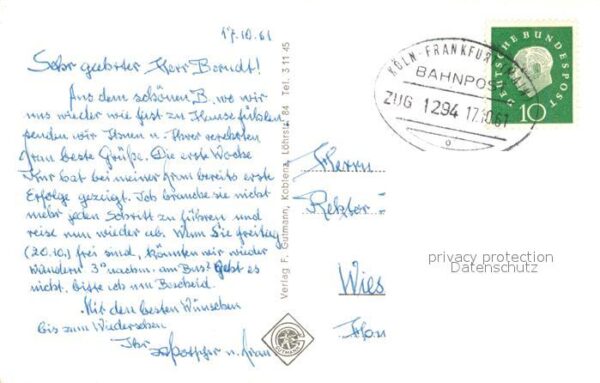 17.10.61
Sehr geehrter Herr Berndt!
Aus dem schönen B. wo wir
uns wieder wie fast zu Hause fühlen
senden wir Ihnen u. Ihrer verehrten
Frau beste Grüße. Die erste Woche
Kur hat bei meiner Frau bereits erste
Erfolge gezeigt. Ich brauche sie nicht
mehr jeden Schritt zu führen und
reise nun wieder ab. Wenn Sie Freitag
(20.10.) frei sind, könnten wir wieder
wandern 3° nachm. am Bus? Geht es
nicht, bitte ich um Bescheid.
Mit den besten Wünschen
bis zum Wiedersehen
Ihr u. Frau
Verlag F. Gutmann, Koblenz, Löhrstr. 84 Tel. 3 11 45
GUTMANN
KÖLN-FRANKFURT (MAIN)
BAHNPOST
ZUG 1294 17.10.61
DEUTSCHE BUNDESPOST
10
Herrn
Rektor
Wies
privacy protection
Datenschutz